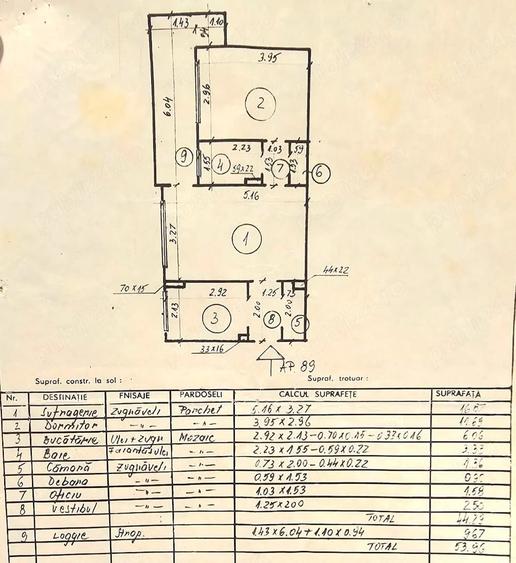 1.43 1.10
1 94
3.95
6.04
2.96
2
9
2.23 1.03 59
1.55 4 1.53 7 1.53 6
59×22
5.16
3.27
1
70×15
44×22
2.92 1.25 73
2.13 3 2.00 8 2.00 5
33×16
AP 89
Supraf. constr. la sol : Supraf. trotuar :
Nr. DESTINAȚIE FNISAJE PARDOSELI CALCUL SUPRAFEȚE SUPRAFAȚĂ
1 Sufragerie Zugrăveli Parchet 5.16 × 3.27
2 Dormitor -"- -"- 3.95 × 2.96
3 Bucătărie Ulei+zugr Mozaic 2.92 × 2.13-0.70×0.15-0.33×0.16
4 Baie -"- 2.23 × 1.55-0.59×0.22
5 Cămară Zugrăveli -"- 0.73 × 2.00-0.44×0.22
6 Debara -"- -"- 0.59 × 1.53
7 Oficiu -"- -"- 1.03 × 1.53 1.58
8 Vestibul -"- -"- 1.25×200 2.50
TOTAL
9 Loggie Strop. 1.43 × 6.04 + 1.10 × 0.94 9.67
TOTAL